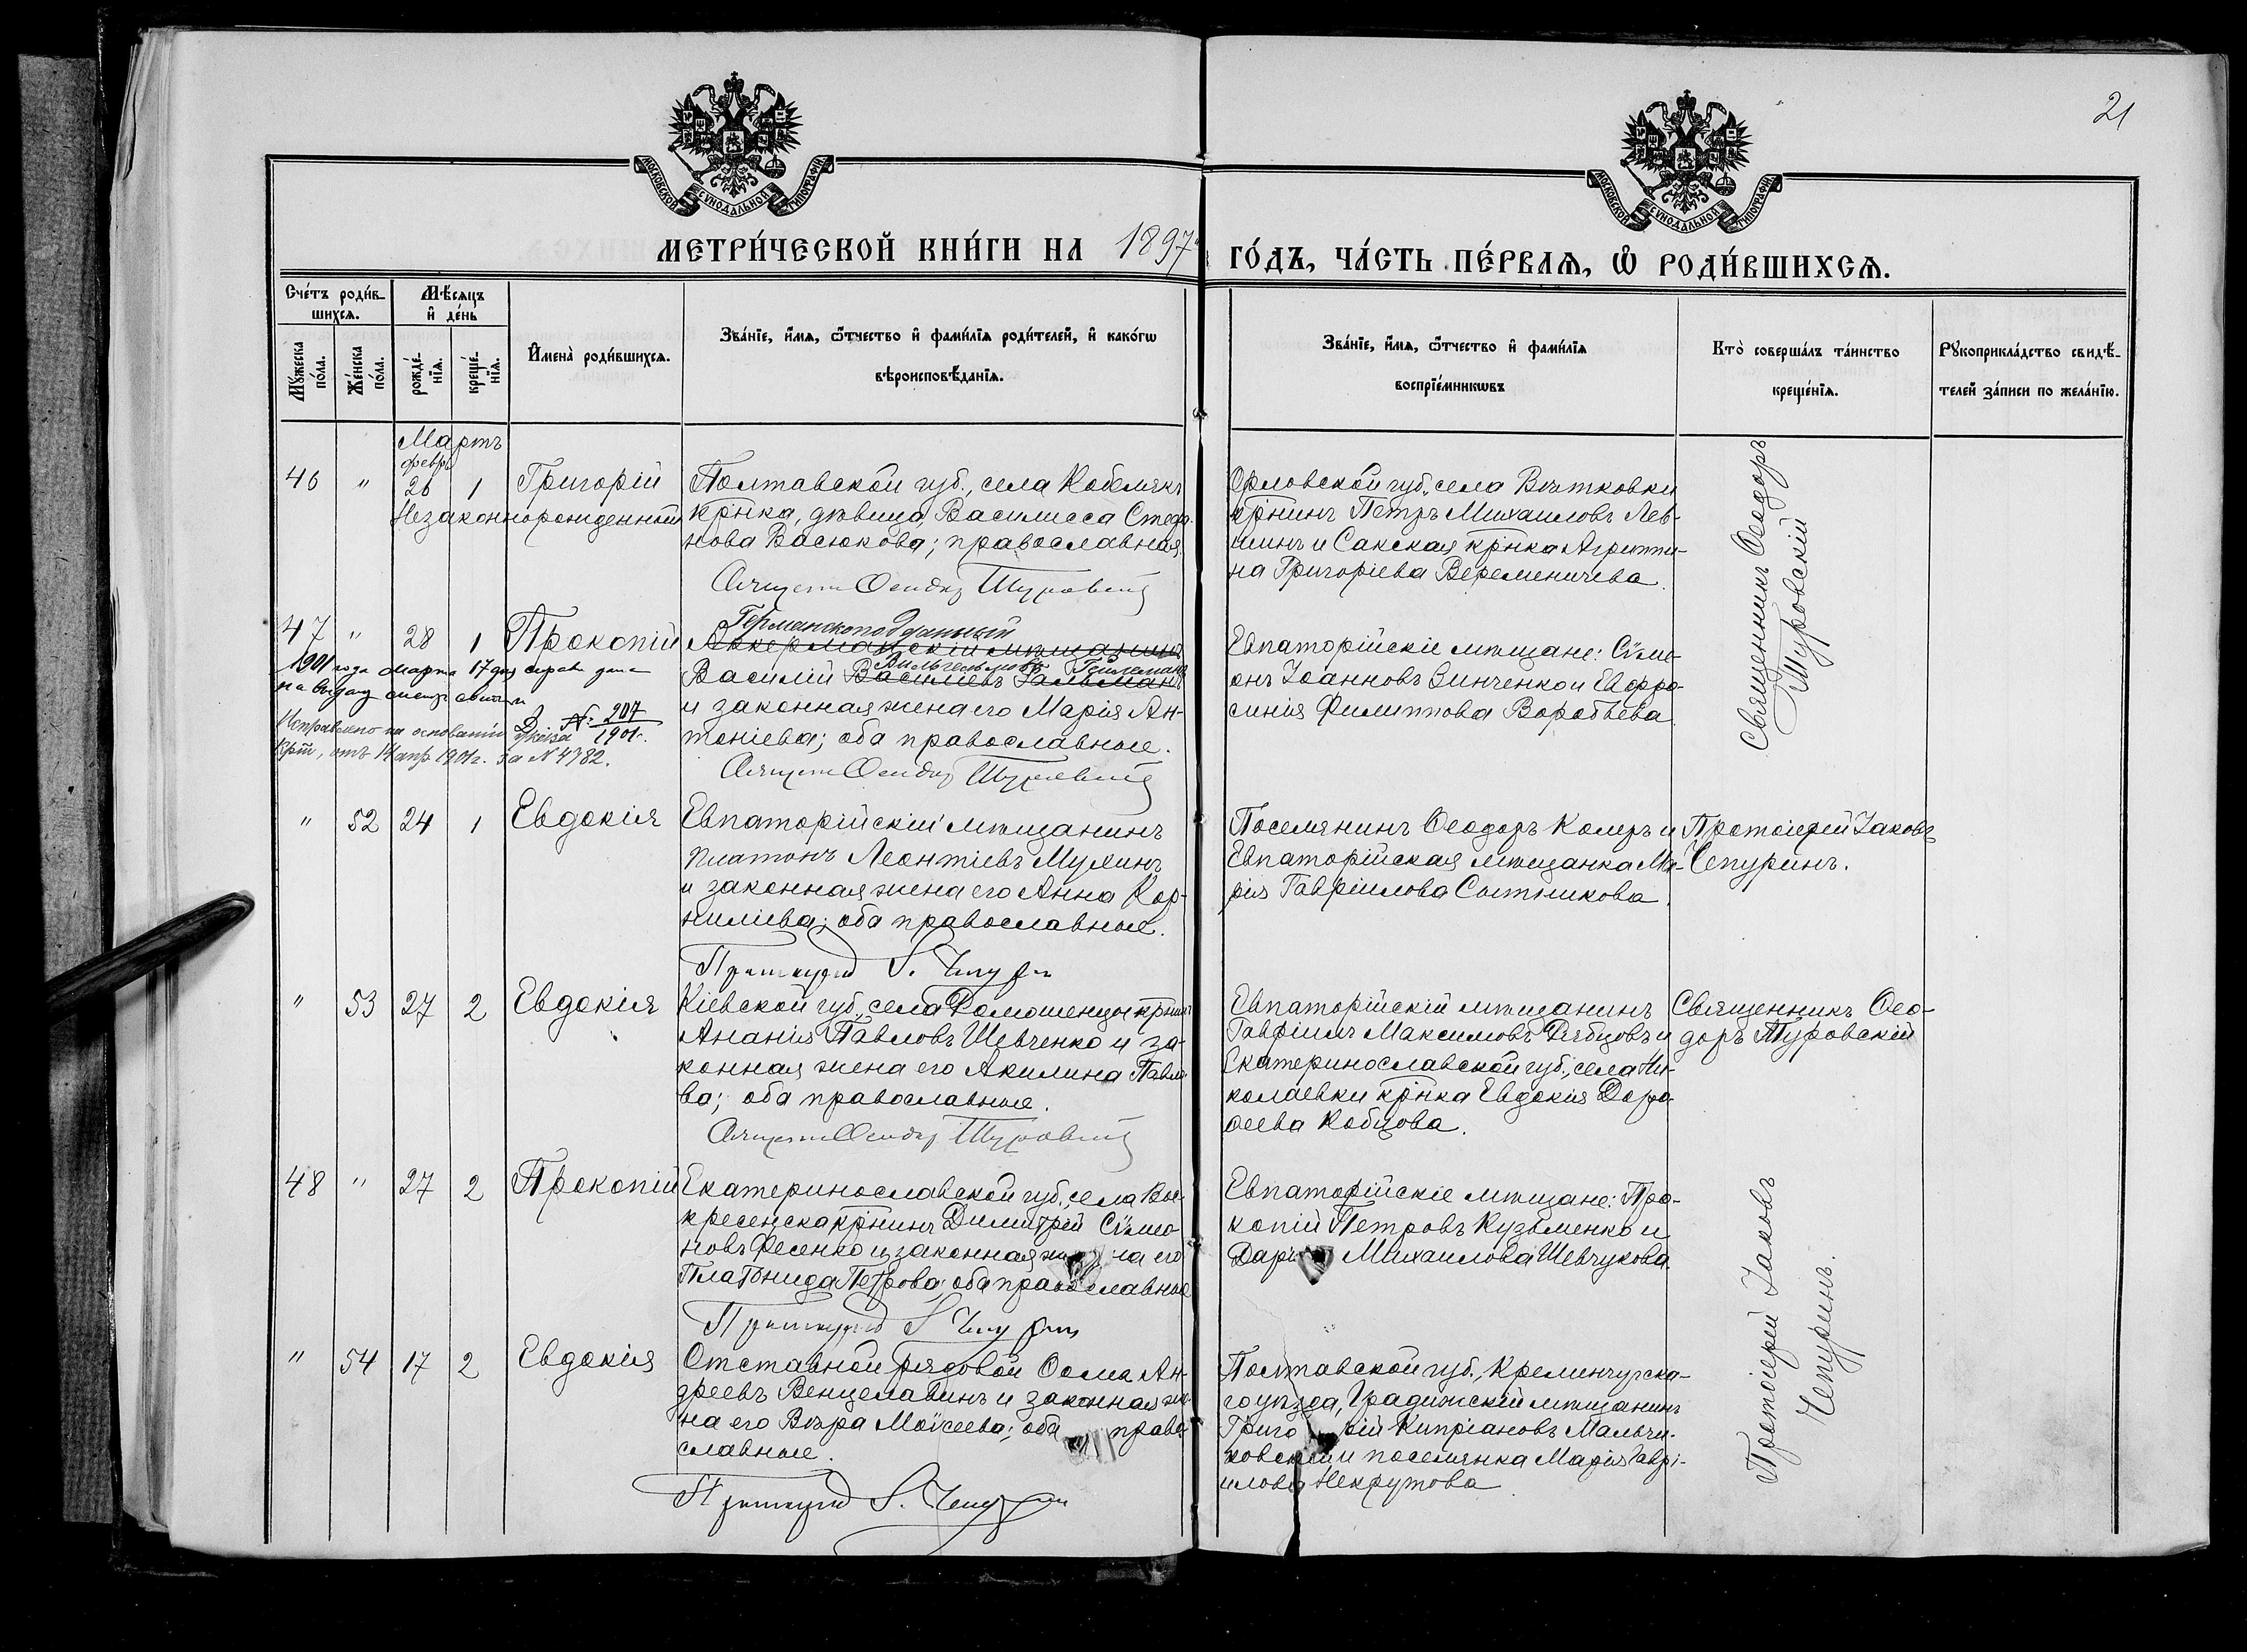 21
МОСКОВСКОЙ СѴНОДАЛЬНОЙ ТИПОГРАФІИ
МОСКОВСКОЙ СѴНОДАЛЬНОЙ ТИПОГРАФІИ
МЕТРИ́ЧЕСКОЙ КНИ́ГИ НА 1897 ГО́ДЪ, ЧА́СТЬ ПЕ́РВАѦ, Ѡ҆ РОДИ́ВШИХСѦ.
Сче́тъ роди́в-
шихсѧ.
Мѹ́жеска по́ла.
Же́нска по́ла.
Мѣ́сѧцъ
и҆ де́нь
рожде́-
нїѧ.
креще́-
нїѧ.
И҆мена̀ роди́вшихсѧ.
Зва́нїе, и҆́мѧ, ѻ҆́тчество и҆ фами́лїѧ роди́телей, и҆ како́гѡ
вѣроисповѣ́данїѧ.
Зва́нїе, и҆́мѧ, ѻ҆́тчество и҆ фами́лїѧ
воспрїе́мникѡвъ
Кто̀ соверша́лъ та́инство
креще́нїѧ.
Рѹкоприкла́дство свидѣ́-
телей за́писи по жела́нїю.
Мартъ
февр.
46 " 26 1 Григорій
Незаконнорожденный
Полтавской губ., села Кобелякъ
крнка, дѣвица, Василисса Стефа-
нова Васюкова; православная.
Священ Ѳеодор Туровскій
Орловской губ., села Вѣтковки
крнинъ Петръ Михаиловъ Лев-
шинъ и Сакская крнка Агриппи-
на Григоріева Веременичева.
Священникъ Ѳеодоръ
Туровскій
47 " 28 1 Прокопій
1901 года марта 17 дня справ дана
на выдачу свидѣт
№ 207
1901 г.
Исправлено на основаніи Указа
отъ 14 апр 1901 г. за N 4782.
Германскоподданный
Аккерманскій мѣщанинъ
Вильгельмовъ
Василій Василіевъ
и законная жена его Марія Ан-
тоніева; оба православные.
Священ Ѳеодор Туровскій
Евпаторійскіе мѣщане: Сѵме-
онъ Іоанновъ Зинченко и Евфро-
синія Филиппова Воробьева
" 52 24 1 Евдокія
Евпаторійскій мѣщанинъ
Платонъ Леонтіевъ Мухинъ
и законная жена его Анна Кор-
ниліева; оба православные.
Протоіерей Чепурин
Поселянинъ Ѳеодоръ Колеръ и
Евпаторійская мѣщанка Ма-
рія Гавріилова Сытникова.
Протоіерей Іаковъ
Чепуринъ.
" 53 27 2 Евдокія
Кіевской губ., села крнинъ
Ананія Павловъ Шевченко и за-
конная жена его Акилина Павло-
ва; оба православные.
Священ Ѳеодор Туровскій
Евпаторійскій мѣщанинъ
Гавріилъ Максимовъ Рябцовъ и
Екатеринославской губ., села Ни-
колаевки крнка Евдокія Доро-
ѳеева Кобцова.
Священникъ Ѳео-
доръ Туровскій
48 " 27 2 Прокопій
Екатеринославской губ., села Вос-
кресенска крнинъ Димитрій Сѵмео-
новъ Фесенко и законная жена его
Платонида Петрова; оба православные
Протоіерей Чепурин
Евпаторійскіе мѣщане: Про-
копій Петровъ Кузьменко и
Дарья Михаилова Шевчукова
Протоіерей Іаковъ
Чепуринъ.
" 54 17 2 Евдокія
Отставной рядовой Ѳома Ан-
дреевъ Венцелавинъ и законная же-
на его Вѣра Моѵсеева; оба право-
славные.
Протоіерей Чепурин
Полтавской губ., Кременчугска-
го уѣзда, Градижскій мѣщанинъ
Григорій Кипріановъ Мальчи-
ковскій и поселянка Марія Гаврі-
илова Некрутова